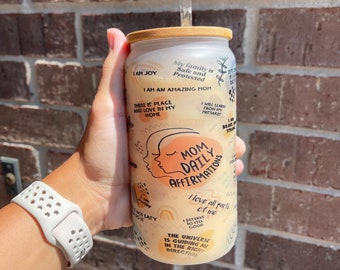 I AM JOY
My family is
Safe and
Protected
I AM AN AMAZING MOM
THERE IS PEACE
AND LOVE IN MY
HOME
I WILL LEARN
FROM MY
I AM
MOM
DAILY
AFFIRMATIONS
I love all parts
of me
I DESERVE
TO FEEL
GOOD
THE UNIVERSE
IS GUIDING ME
IN THE RIGHT
DIRECTION